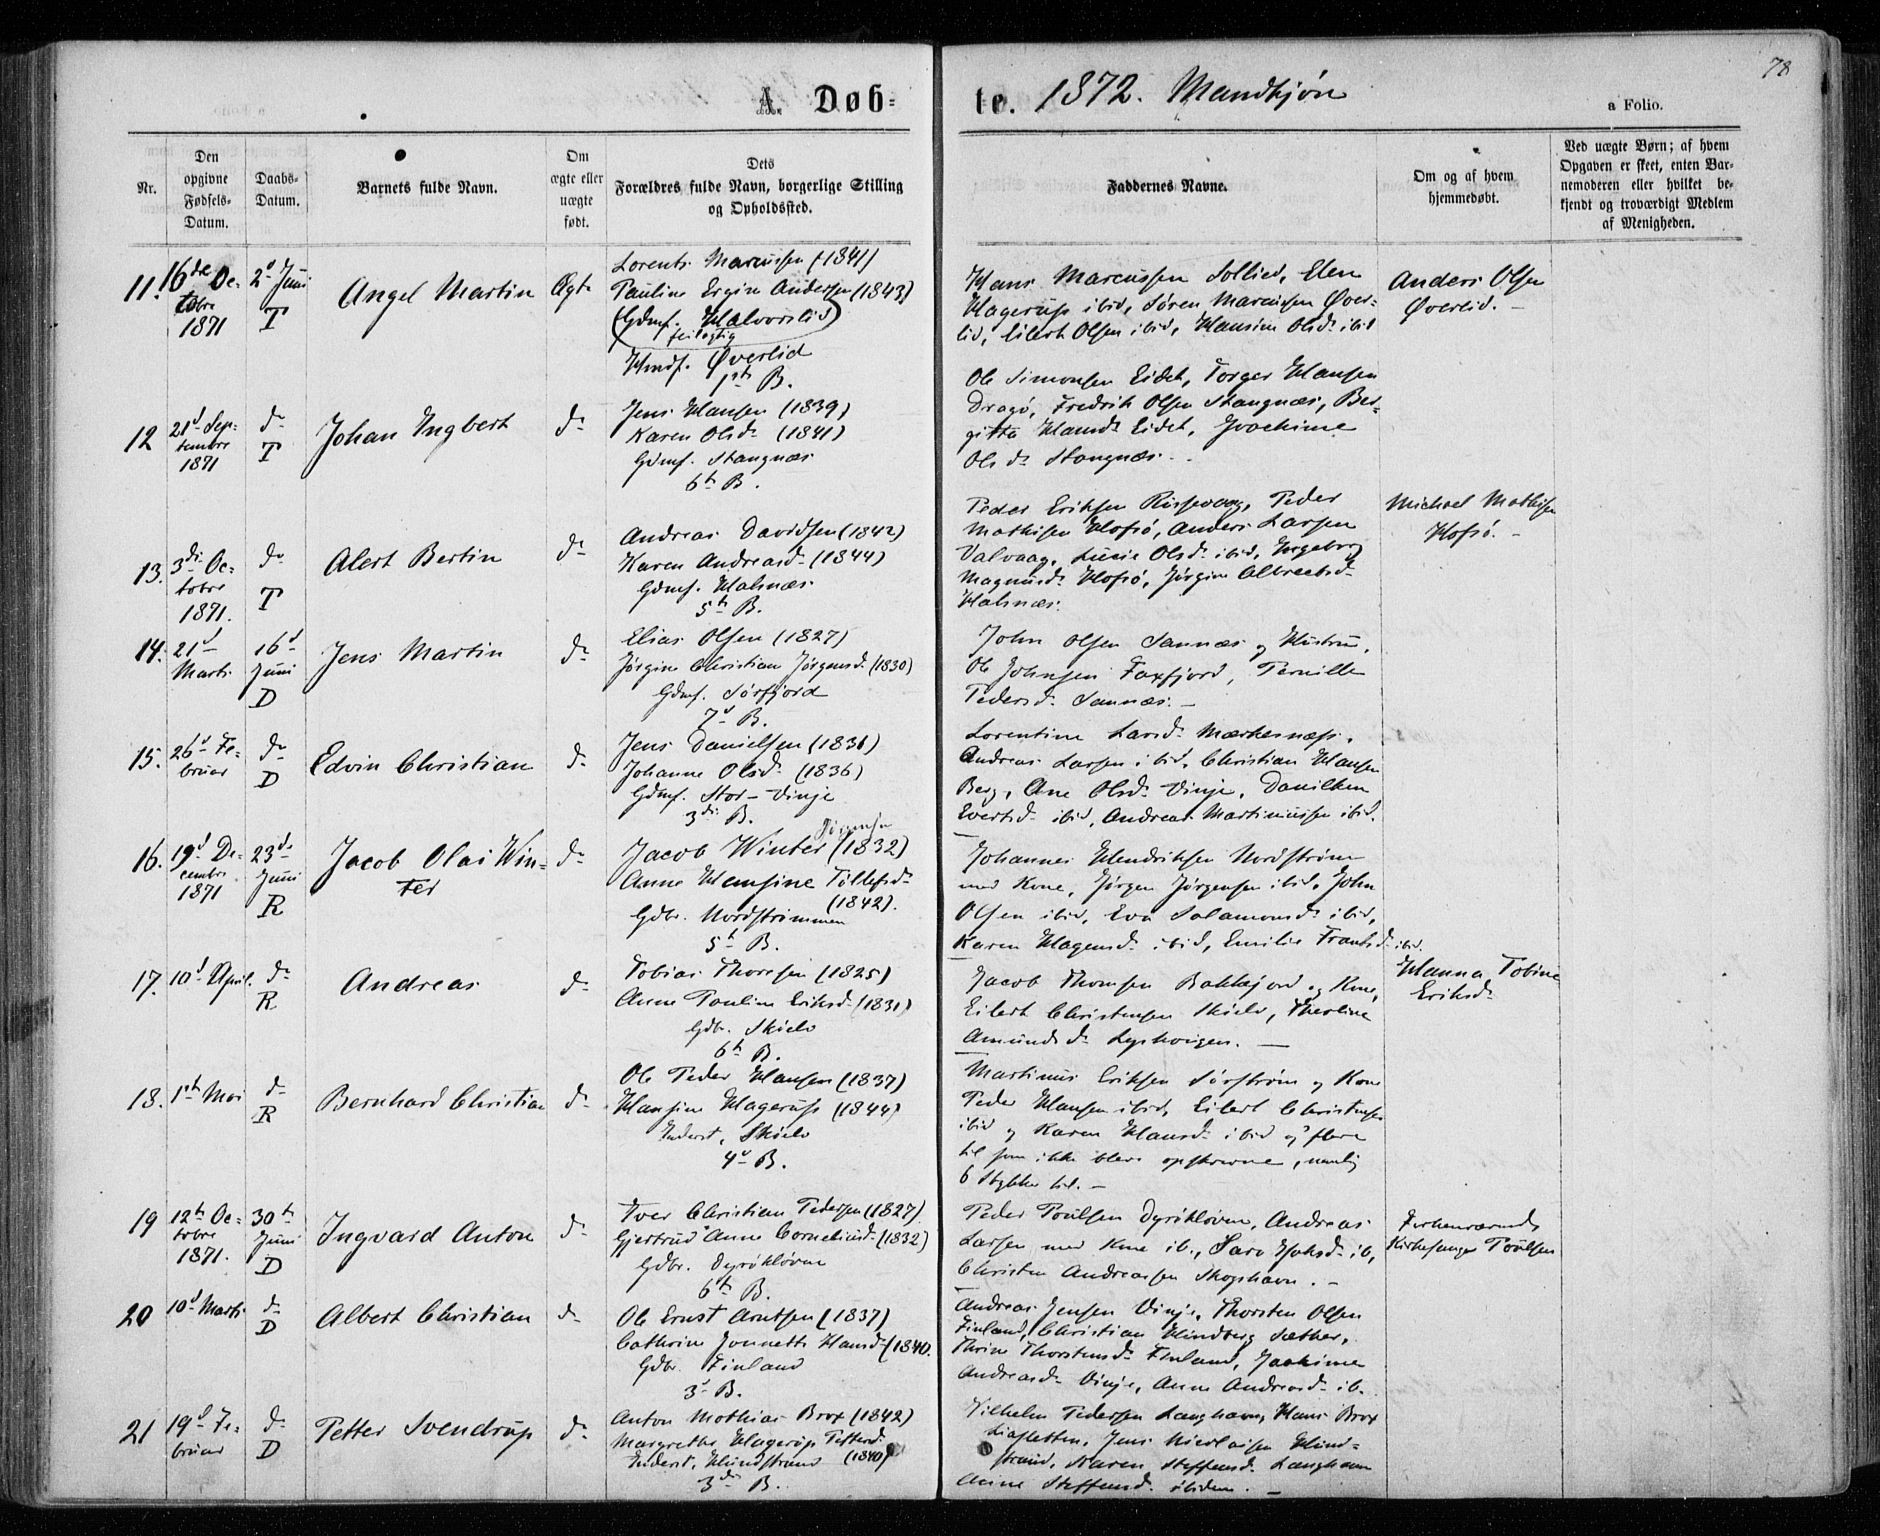 78
A. Døb-
te. 1872. Mandkjøn
a Folio.
Nr.
Den
opgivne
Fødsels-
Datum.
Daabs-
Datum.
Barnets fulde Navn.
Om
ægte eller
uægte
født.
Dets
Forældres fulde Navn, borgerlige Stilling
og Opholdssted.
Faddernes Navne.
Om og af hvem
hjemmedøbt.
Ved uægte Børn; af hvem
Opgaven er skeet, enten Bar-
nemoderen eller hvilket be-
kjendt og troværdigt Medlem
af Menigheden.
11.
16de Oc-
tobre
1871
2d Juni
T
Angel Martin
Ægte
Lorents Marcussen (1841)
Pauline Ergine Andersen (1843)
(Gdmf. Halvorslid)
feilagtig
Hmdf. Øverlid
1ste B.
Hans Marcussen Sollied, Elen
Hagerups ibid, Søren Marcussen Øver-
lid, Eilert Olsen ibid, Hansine Olsd. ibid
Anders Olsen
Øverlid. -
12
21d Sep-
tembre
1871
do
T
Johan Ingbert
do
Jens Hansen (1839)
Karen Olsd. (1841)
Gdmf. Stangnæs
6te B.
Ole Simonsen Eidet, Torger Hansen
Dragø, Fredrik Olsen Stangnæs, Ber-
gitte Hansd. Eidet, Joachime
Olsd. Stangnæs.
13.
3die Oc-
tobre
1871.
do
T
Alert Bertin
do
Andreas Davidsen (1842)
Karen Andreasd. (1844)
Gdmf. Halsnæs
5te B.
Peder Eriksen Rissevaag, Peder
Mathisen Hofsø, Anders Larsen
Valvaag, Lucie Olsd. ibid, Ingeborg
Magnusd. Hofsø, Jørgine Albrectsd.
Halsnæs.
Michael Mathisen
Hofsø. -
14.
21d
Marts.
16d
Juni
D
Jens Martin
do
Elias Olsen (1827)
Jørgine Christian Jørgensd. (1830)
Gdmf. Sørfjord
7d B.
John Olsen Sannæs og Hustrue,
Ole Johnsen Faxfjord, Pernille
Pedersd. Sannæs. -
15.
26d Fe-
bruar
do
D
Edvin Christian
do
Jens Danielsen (1831)
Johanne Olsd. (1836)
Gdmf. Stor-Vinje
3die B.
Lorentine Larsd. Mærkesnæss.
Andreas Larsen ibid, Christian Hansen
Berg, Ane Olsd. Vinje, Danilken
Evertsd. ibid, Andreas Martinussen ibid.
16.
19d De-
cembre
1871
23de
Juni
R
Jacob Olai Win-
ter
do
Jørgensen
Jacob Winter (1832)
Anne Hansine Tollefsd.
(1842).
Gdbr. Nordstrømmen
5te B.
Johannes Hendriksen Nordstrøm
med Kone, Jørgen Jørgensen ibid, John
Olsen ibid, Eva Salamonsd. ibid,
Karen Hagensd. ibid, Emilie Frantsd. ibid.
17.
10d April.
do
R
Andreas
do
Tobias Thoresen (1825)
Anne Pauline Eriksd. (1831)
Gdbr. Skielv
6te B.
Jacob Thomsen Bakkejord og Kone,
Eilert Christensen Skielv, Theoline
Amundsd. Lyshvigen. -
Hanna Tobine
Eriksd.
18.
1ste Mai
do
R
Bernhard Christian
do
Ole Peder Hansen (1837)
Hansine Hagerups (1844)
Inderst, Skielv
4d B.
Martinus Eriksen Sørstrøm og Kone
Peder Hansen ibid, Eilert Christensen
ibid og Karen Hansd. ibid og flere
til som ikke bleve opskrevne, nemlig
6 Stykker til. -
19
12te Oc-
tobre
1871.
30te
Juni
D
Ingvard Anton
do
Iver Christian Pedersen (1827)
Gjertrud Anne Corneliusd. (1832)
Gdbr. Dyrøkløven
6te B.
Peder Poulsen Dyrøkløven, Andreas
Larsen med Kone ib., Sara Isaksd. ib,
Christen Andreassen Skogshavn. -
Kirkesanger Poulsen
20
10d Marts
do
D
Albert Christian
do
Ole Ernst Arntsen (1837)
Cathrine Jonnette Hansd. (1840.
Gdbr. Finland
3d B.
Andreas Jensen Vinje, Thorsten Olsen
Finland, Christian Hindberg Sæther,
Thrine Thorstensd. Finland, Joakime
Andreasd. Vinje, Anne Andreasd. ib.
21
19d Fe-
bruar
do
D
Petter Svendrup
do
Anton Mathias Brox (1842)
Margrethe Hagerup Pettersd.
(1840)
Inderst, Hundstrand
3die B.
Vilhelm Pedersen Langhavn, Hans Brox
Liasletten, Jens Nicolaisen Hund-
strand, Karen Steffensd. Langhavn
Anne Steffensd. ibidem. -